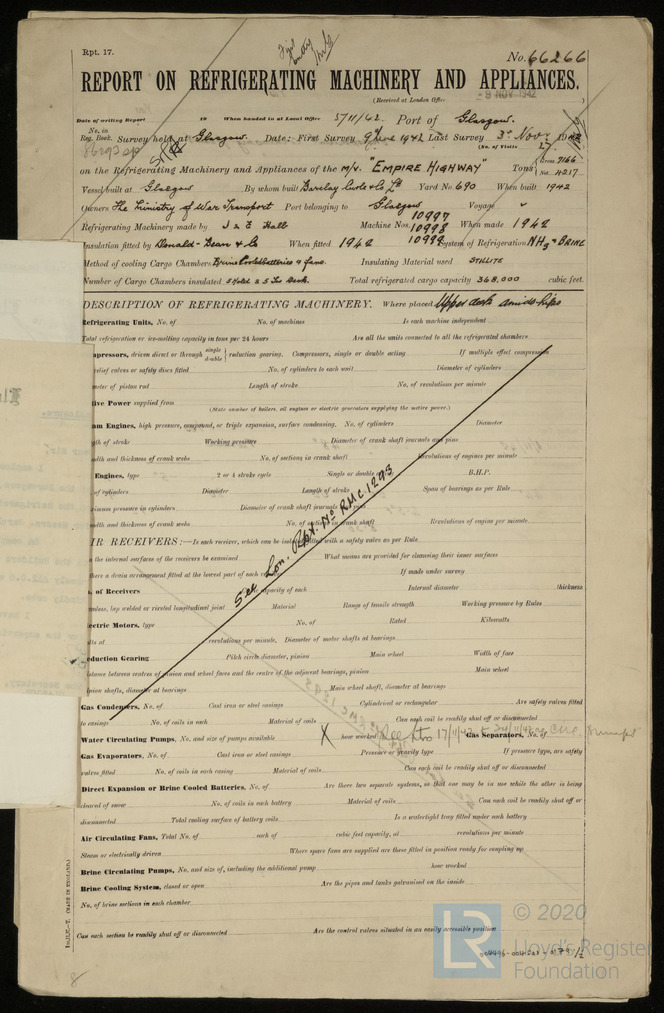 Rpt. 17.
No. 66266
REPORT ON REFRIGERATING MACHINERY AND APPLIANCES.
(Received at London Office
9 NOV 1942
Date of writing Report 19 When handed in at Local Office 5/11/42. Port of Glasgow.
No. in Reg. Book. Survey held at Glasgow. Date: First Survey 9th June 1942 Last Survey 3rd Nov. 1942
(No. of Visits 27
on the Refrigerating Machinery and Appliances of the m/v. "EMPIRE HIGHWAY" Tons Gross 7166 Net 4217
Vessel built at Glasgow By whom built Barclay Curle & Co Ld Yard No. 690 When built 1942
Owners The Ministry of War Transport Port belonging to Glasgow Voyage
Refrigerating Machinery made by J & E Hall Machine Nos. 10997 10998 10999 When made 1942
Insulation fitted by Donald-Bean & Co When fitted 1942 System of Refrigeration NH3 & BRINE
Method of cooling Cargo Chambers Brine Cooled batteries & fans. Insulating Material used STILLITE
Number of Cargo Chambers insulated 5 Total refrigerated cargo capacity 368,000 cubic feet.
DESCRIPTION OF REFRIGERATING MACHINERY. Where placed Upper deck amidships
Refrigerating Units, No. of No. of machines Is each machine independent
Total refrigeration or ice-melting capacity in tons per 24 hours Are all the units connected to all the refrigerated chambers
mpressors, driven direct or through single double reduction gearing. Compressors, single or double acting If multiple effect compression
relief valves or safety discs fitted No. of cylinders to each unit Diameter of cylinders
meter of piston rod Length of stroke No. of revolutions per minute
tive Power supplied from
(State number of boilers, oil engines or electric generators supplying the motive power.)
am Engines, high pressure, compound, or triple expansion, surface condensing. No. of cylinders Diameter
gth of stroke Working pressure Diameter of crank shaft journals and pins
dth and thickness of crank webs No. of sections in crank shaft Revolutions of engines per minute
Engines, type 2 or 4 stroke cycle Single or double B.H.P.
of cylinders Diameter Length of stroke Span of bearings as per Rule
ximum pressure in cylinders Diameter of crank shaft journals pins
adth and thickness of crank webs No. of sections in crank shaft Revolutions of engine per minute
IR RECEIVERS:—Is each receiver, which can be isolated, fitted with a safety valve as per Rule
n the internal surfaces of the receivers be examined What means are provided for cleansing their inner surfaces
there a drain arrangement fitted at the lowest part of each receiver If made under survey
. of Receivers capacity of each Internal diameter thickness
mless, lap welded or riveted longitudinal joint Material Range of tensile strength Working pressure by Rules
ectric Motors, type No. of Rated Kilowatts
lts at revolutions per minute, Diameter of motor shafts at bearings
eduction Gearing Pitch circle diameter, pinion Main wheel Width of face
istance between centres of pinion and wheel faces and the centre of the adjacent bearings, pinion Main wheel
inion shafts, diameter at bearings Main wheel shaft, diameter at bearings
See Lon. Rpt. No RMC.1293
Gas Condensers, No. of Cast iron or steel casings Cylindrical or rectangular Are safety valves fitted
to casings No. of coils in each Material of coils Can each coil be readily shut off or disconnected
Water Circulating Pumps, No. and size of pumps available X how worked Gas Separators, No. of
Gas Evaporators, No. of Cast iron or steel casings Pressure or gravity type If pressure type, are safety
valves fitted No. of coils in each casing Material of coils Can each coil be readily shut off or disconnected
Direct Expansion or Brine Cooled Batteries, No. of Are there two separate systems, so that one may be in use while the other is being
cleared of snow No. of coils in each battery Material of coils Can each coil be readily shut off or
disconnected Total cooling surface of battery coils Is a watertight tray fitted under each battery
Air Circulating Fans, Total No. of each of cubic feet capacity, at revolutions per minute
Steam or electrically driven Where spare fans are supplied are these fitted in position ready for coupling up
Brine Circulating Pumps, No. and size of, including the additional pump how worked
Brine Cooling System, closed or open Are the pipes and tanks galvanised on the inside
No. of brine sections in each chamber
Can each section be readily shut off or disconnected Are the control valves situated in an easily accessible position
(MADE IN ENGLAND.)
© 2020
Lloyd's Register
Foundation
LR